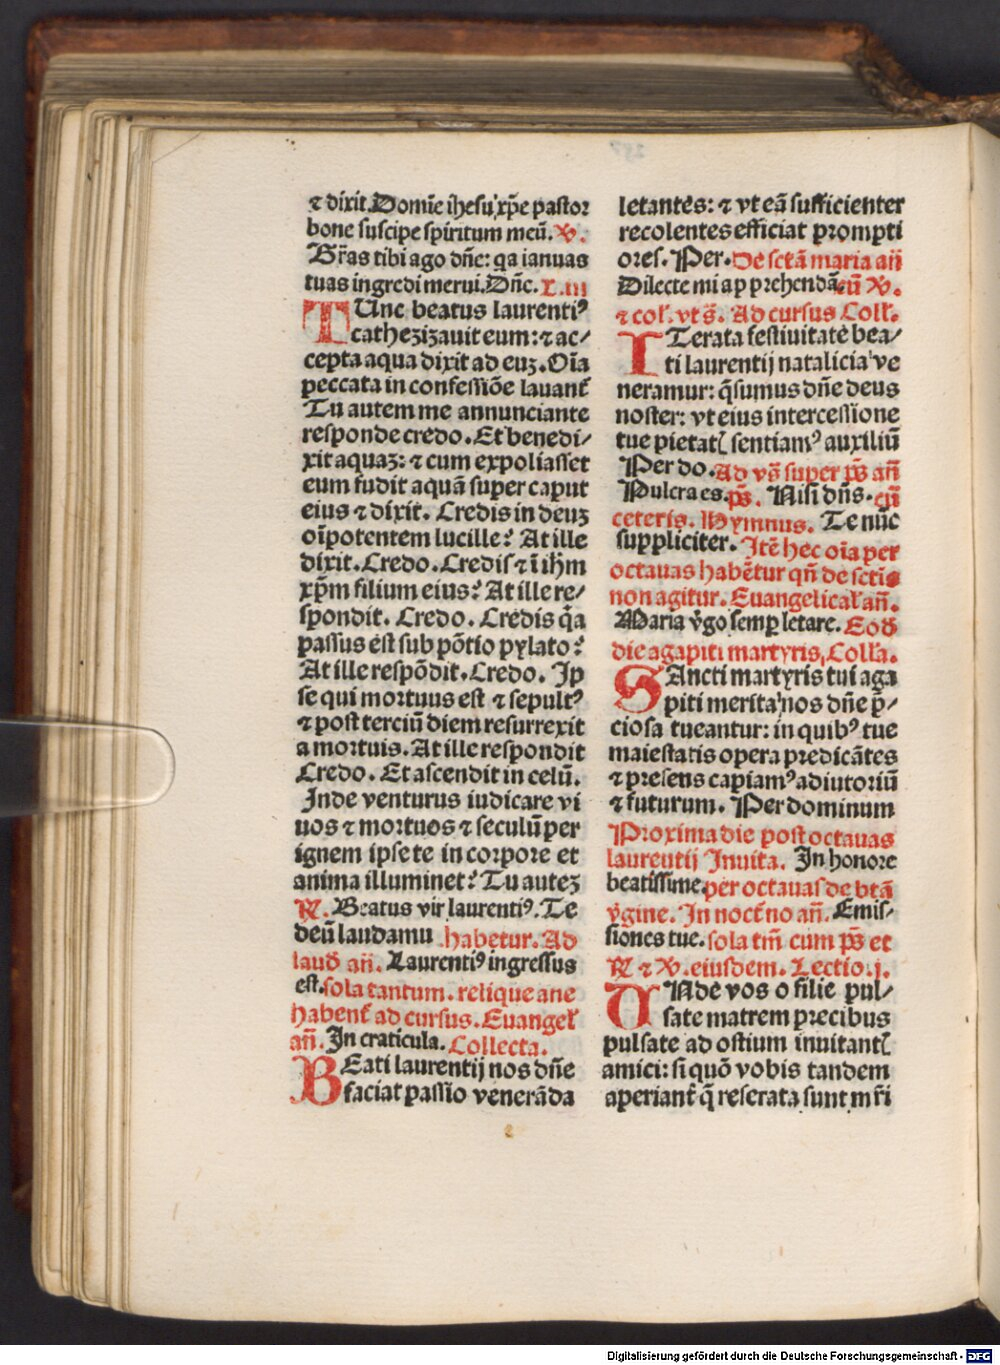 ⁊ dixit. Domīe ihesu xp̄e pastor
bone suscipe spiritum meū. ℣.
Gr̄as tibi ago dn̄e: qa ianuas
tuas ingredi merui. Dn̄e. L. iii
TUnc beatus laurentiꝰ
cathezizauit eum: ⁊ ac/
cepta aqua dixit ad euꝫ. Oīa
peccata in confessiōe lauant᷑
Tu autem me annunciante
responde credo. Et benedi/
xit aquaꝫ: ⁊ cum expoliasset
eum fudit aquā super caput
eius ⁊ dixit. Credis in deuꝫ
oīpotentem lucille? At ille
dixit. Credo. Credis ⁊ ī ihm̄
xp̄m filium eius? At ille re/
spondit. Credo. Credis q̄a
passus est sub pōtio pylato?
At ille respōdit. Credo. Ip
se qui mortuus est ⁊ sepultꝰ
⁊ post terciū diem resurrexit
a mortuis. At ille respondit
Credo. Et ascendit in celū.
Inde venturus iudicare vi
uos ⁊ mortuos ⁊ seculū per
ignem ipse te in corpore et
anima illuminet? Tu auteꝫ
℟. Beatus vir laurentiꝰ. Te
deū laudamu habetur. Ad
laud̄ an̄. Laurentiꝰ ingressus
est. sola tantum. relique ane
habent᷑ ad cursus. Euangel̄
an̄. In craticula. Collecta.
BEati laurentij nos dn̄e
faciat passio venerāda
letantes: ⁊ vt eā sufficienter
recolentes efficiat prompti
ores. Per. De sctā maria an̄
Dilecte mi app̄rehendā. cū ℣.
⁊ col̄. vt s̄. Ad cursus Coll̄.
ITerata festiuitate bea/
ti laurentij natalicia ve
neramur: q̄sumus dn̄e deus
noster: vt eius intercessione
tue pietatꝭ sentiamꝰ auxiliū
Per do. Ad vs̄ super ps̄ an̄
Pulcra es. ps̄. Nisi dn̄s. cū
ceteris. Hymnus. Te nūc
suppliciter. Itē hec oīa per
octauas habētur qn̄ de sctis
non agitur. Euangelical̄ an̄.
Maria v̄go semp̱ letare. Eod̄
die agapiti martyris, Coll̄a.
SAncti martyris tui aga
piti merita nos dn̄e p̄/
ciosa tueantur: in quibꝰ tue
maiestatis opera predicātes
⁊ presens capiamꝰ adiutoriū
⁊ futurum. Per dominum
Proxima die post octauas
laurentij Inuita. In honore
beatissime. per octauas de btā
v̄gine. In noct̄no an̄. Emis/
siones tue. sola tm̄ cum ps̄ et
℟ ⁊ ℣. eiusdem. Lectio. j.
UNde vos o filie pul/
sate matrem precibus
pulsate ad ostium inuitantꝭ
amici: si quō vobis tandem
aperiant᷑ q̄ reserata sunt mr̄i
Digitalisierung gefördert durch die Deutsche Forschungsgemeinschaft - DFG